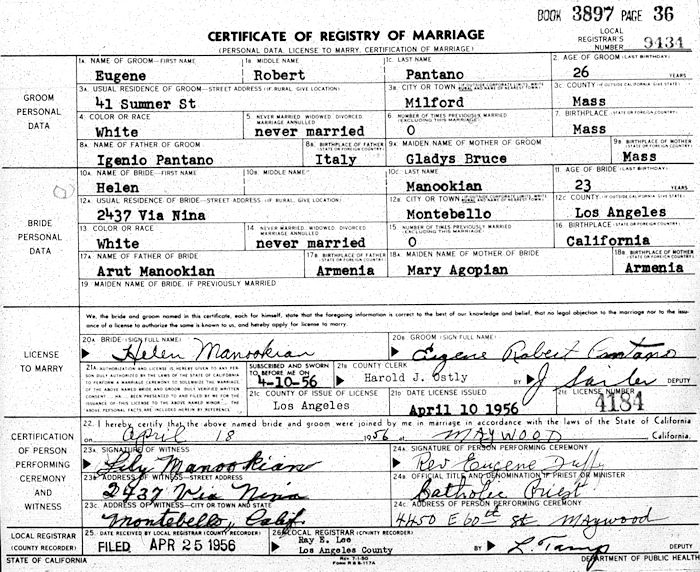 BOOK 3897 PAGE 36
CERTIFICATE OF REGISTRY OF MARRIAGE
(PERSONAL DATA, LICENSE TO MARRY, CERTIFICATION OF MARRIAGE)
LOCAL REGISTRAR'S NUMBER 9434
GROOM PERSONAL DATA
1A. NAME OF GROOM—FIRST NAME 1B. MIDDLE NAME 1C. LAST NAME 2. AGE OF GROOM (LAST BIRTHDAY)
Eugene Robert Pantano 26 YEARS
3A. USUAL RESIDENCE OF GROOM—STREET ADDRESS (IF RURAL, GIVE LOCATION) 3B. CITY OR TOWN (IF OUTSIDE CORPORATE LIMITS, WRITE RURAL AND NAME OF NEAREST TOWN) 3C. COUNTY (IF OUTSIDE CALIFORNIA GIVE STATE)
41 Sumner St Milford Mass
4. COLOR OR RACE 5. NEVER MARRIED, WIDOWED, DIVORCED MARRIAGE ANNULLED 6. NUMBER OF TIMES PREVIOUSLY MARRIED (EXCLUDING THIS MARRIAGE) 7. BIRTHPLACE (STATE OR FOREIGN COUNTRY)
White never married 0 Mass
8A. NAME OF FATHER OF GROOM 8B. BIRTHPLACE OF FATHER (STATE OR FOREIGN COUNTRY) 9A. MAIDEN NAME OF MOTHER OF GROOM 9B. BIRTHPLACE OF MOTHER (STATE OR FOREIGN COUNTRY)
Igenio Pantano Italy Gladys Bruce Mass
BRIDE PERSONAL DATA
10A. NAME OF BRIDE—FIRST NAME 10B. MIDDLE NAME 10C. LAST NAME 11. AGE OF BRIDE (LAST BIRTHDAY)
Helen Manookian 23 YEARS
12A. USUAL RESIDENCE OF BRIDE—STREET ADDRESS (IF RURAL, GIVE LOCATION) 12B. CITY OR TOWN (IF OUTSIDE CORPORATE LIMITS, WRITE RURAL AND NAME OF NEAREST TOWN) 12C. COUNTY (IF OUTSIDE CALIFORNIA GIVE STATE)
2437 Via Nina Montebello Los Angeles
13. COLOR OR RACE 14. NEVER MARRIED, WIDOWED, DIVORCED MARRIAGE ANNULLED 15. NUMBER OF TIMES PREVIOUSLY MARRIED (EXCLUDING THIS MARRIAGE) 16. BIRTHPLACE (STATE OR FOREIGN COUNTRY)
White never married 0 California
17A. NAME OF FATHER OF BRIDE 17B. BIRTHPLACE OF FATHER (STATE OR FOREIGN COUNTRY) 18A. MAIDEN NAME OF MOTHER OF BRIDE 18B. BIRTHPLACE OF MOTHER (STATE OR FOREIGN COUNTRY)
Arut Manookian Armenia Mary Agopian Armenia
19. MAIDEN NAME OF BRIDE, IF PREVIOUSLY MARRIED
We, the bride and groom named in this certificate, each for himself, state that the foregoing information is correct to the best of our knowledge and belief, that no legal objection to the marriage nor to the issu-
ance of a license to authorize the same is known to us, and hereby apply for license to marry.
LICENSE TO MARRY
20A. BRIDE (SIGN FULL NAME) 20B. GROOM (SIGN FULL NAME)
Helen Manookian Eugene Robert Pantano
21A. AUTHORIZATION AND LICENSE IS HEREBY GIVEN TO ANY PER-
SON DULY AUTHORIZED BY THE LAWS OF THE STATE OF CALIFORNIA
TO PERFORM A MARRIAGE CEREMONY TO SOLEMNIZE THE MARRIAGE
OF THE ABOVE NAMED BRIDE AND GROOM. DULY VERIFIED WRITTEN
CONSENT HAS BEEN PRESENTED TO AND FILED BY ME FOR THE
ISSUANCE OF THIS LICENSE TO THE ABOVE NAMED MINOR
ABOVE PERSONAL FACTS ARE INCLUDED HEREIN BY REFERENCE
SUBSCRIBED AND SWORN TO BEFORE ME ON
4-10-56
21B. COUNTY CLERK
Harold J. Ostly BY J DEPUTY
21C. COUNTY OF ISSUE OF LICENSE 21D. DATE LICENSE ISSUED 21E. LICENSE NUMBER
Los Angeles April 10 1956 4184
CERTIFICATION OF PERSON PERFORMING CEREMONY AND WITNESS
22. I hereby certify that the above named bride and groom were joined by me in marriage in accordance with the laws of the State of California
on April 18 1956 at MAYWOOD California.
23A. SIGNATURE OF WITNESS 24A. SIGNATURE OF PERSON PERFORMING CEREMONY
Lily Manookian Rev Eugene
23B. ADDRESS OF WITNESS—STREET ADDRESS 24B. OFFICIAL TITLE AND DENOMINATION IF PRIEST OR MINISTER
2437 Via Nina Catholic Priest
23C. ADDRESS OF WITNESS—CITY OR TOWN AND STATE 24C. ADDRESS OF PERSON PERFORMING CEREMONY
Montebello, Calif. 4450 E 60th St MAYWOOD
LOCAL REGISTRAR (COUNTY RECORDER)
25. DATE RECEIVED BY LOCAL REGISTRAR (COUNTY RECORDER) 26. LOCAL REGISTRAR (COUNTY RECORDER)
FILED APR 25 1956 Ray E. Lee
Los Angeles County BY DEPUTY
STATE OF CALIFORNIA
Rev 7-1-50
Form R & S-117A
DEPARTMENT OF PUBLIC HEALTH